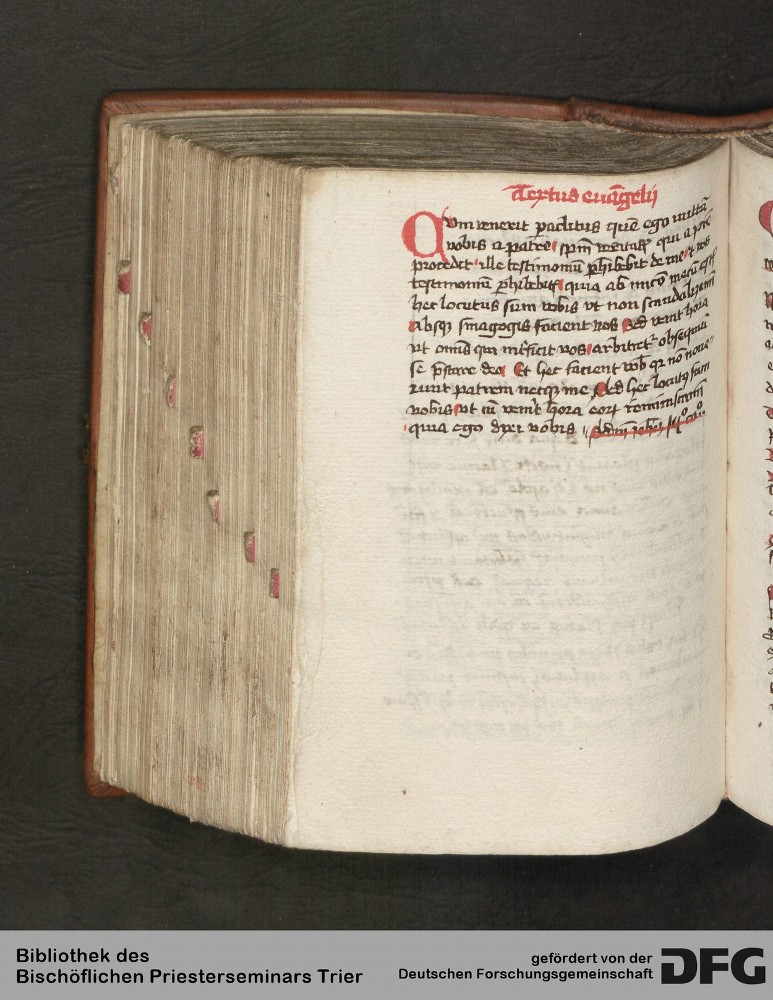 Textus euāgelii
Qum venerit paclitus quē ego mittā
vobis a patre spm veritatis qui a patre
procedit ille testimoniū phibebit de me et vos
testimoniū phibebitis quia ab inicio mecū estis
hec locutus sum vobis vt non scandalizemini
absq sinagogis facient vos Sed venit hora
vt omis qui interficit vos arbitret obsequiū
se pstare deo Et hec facient vob qr no noue
runt patrem neque me Sed hec locutq sum
vobis vt cū venit hora eorū reminiscamini
quia ego dixi vobis
Bibliothek des
Bischöflichen Priesterseminars Trier
gefördert von der
Deutschen Forschungsgemeinschaft
DFG